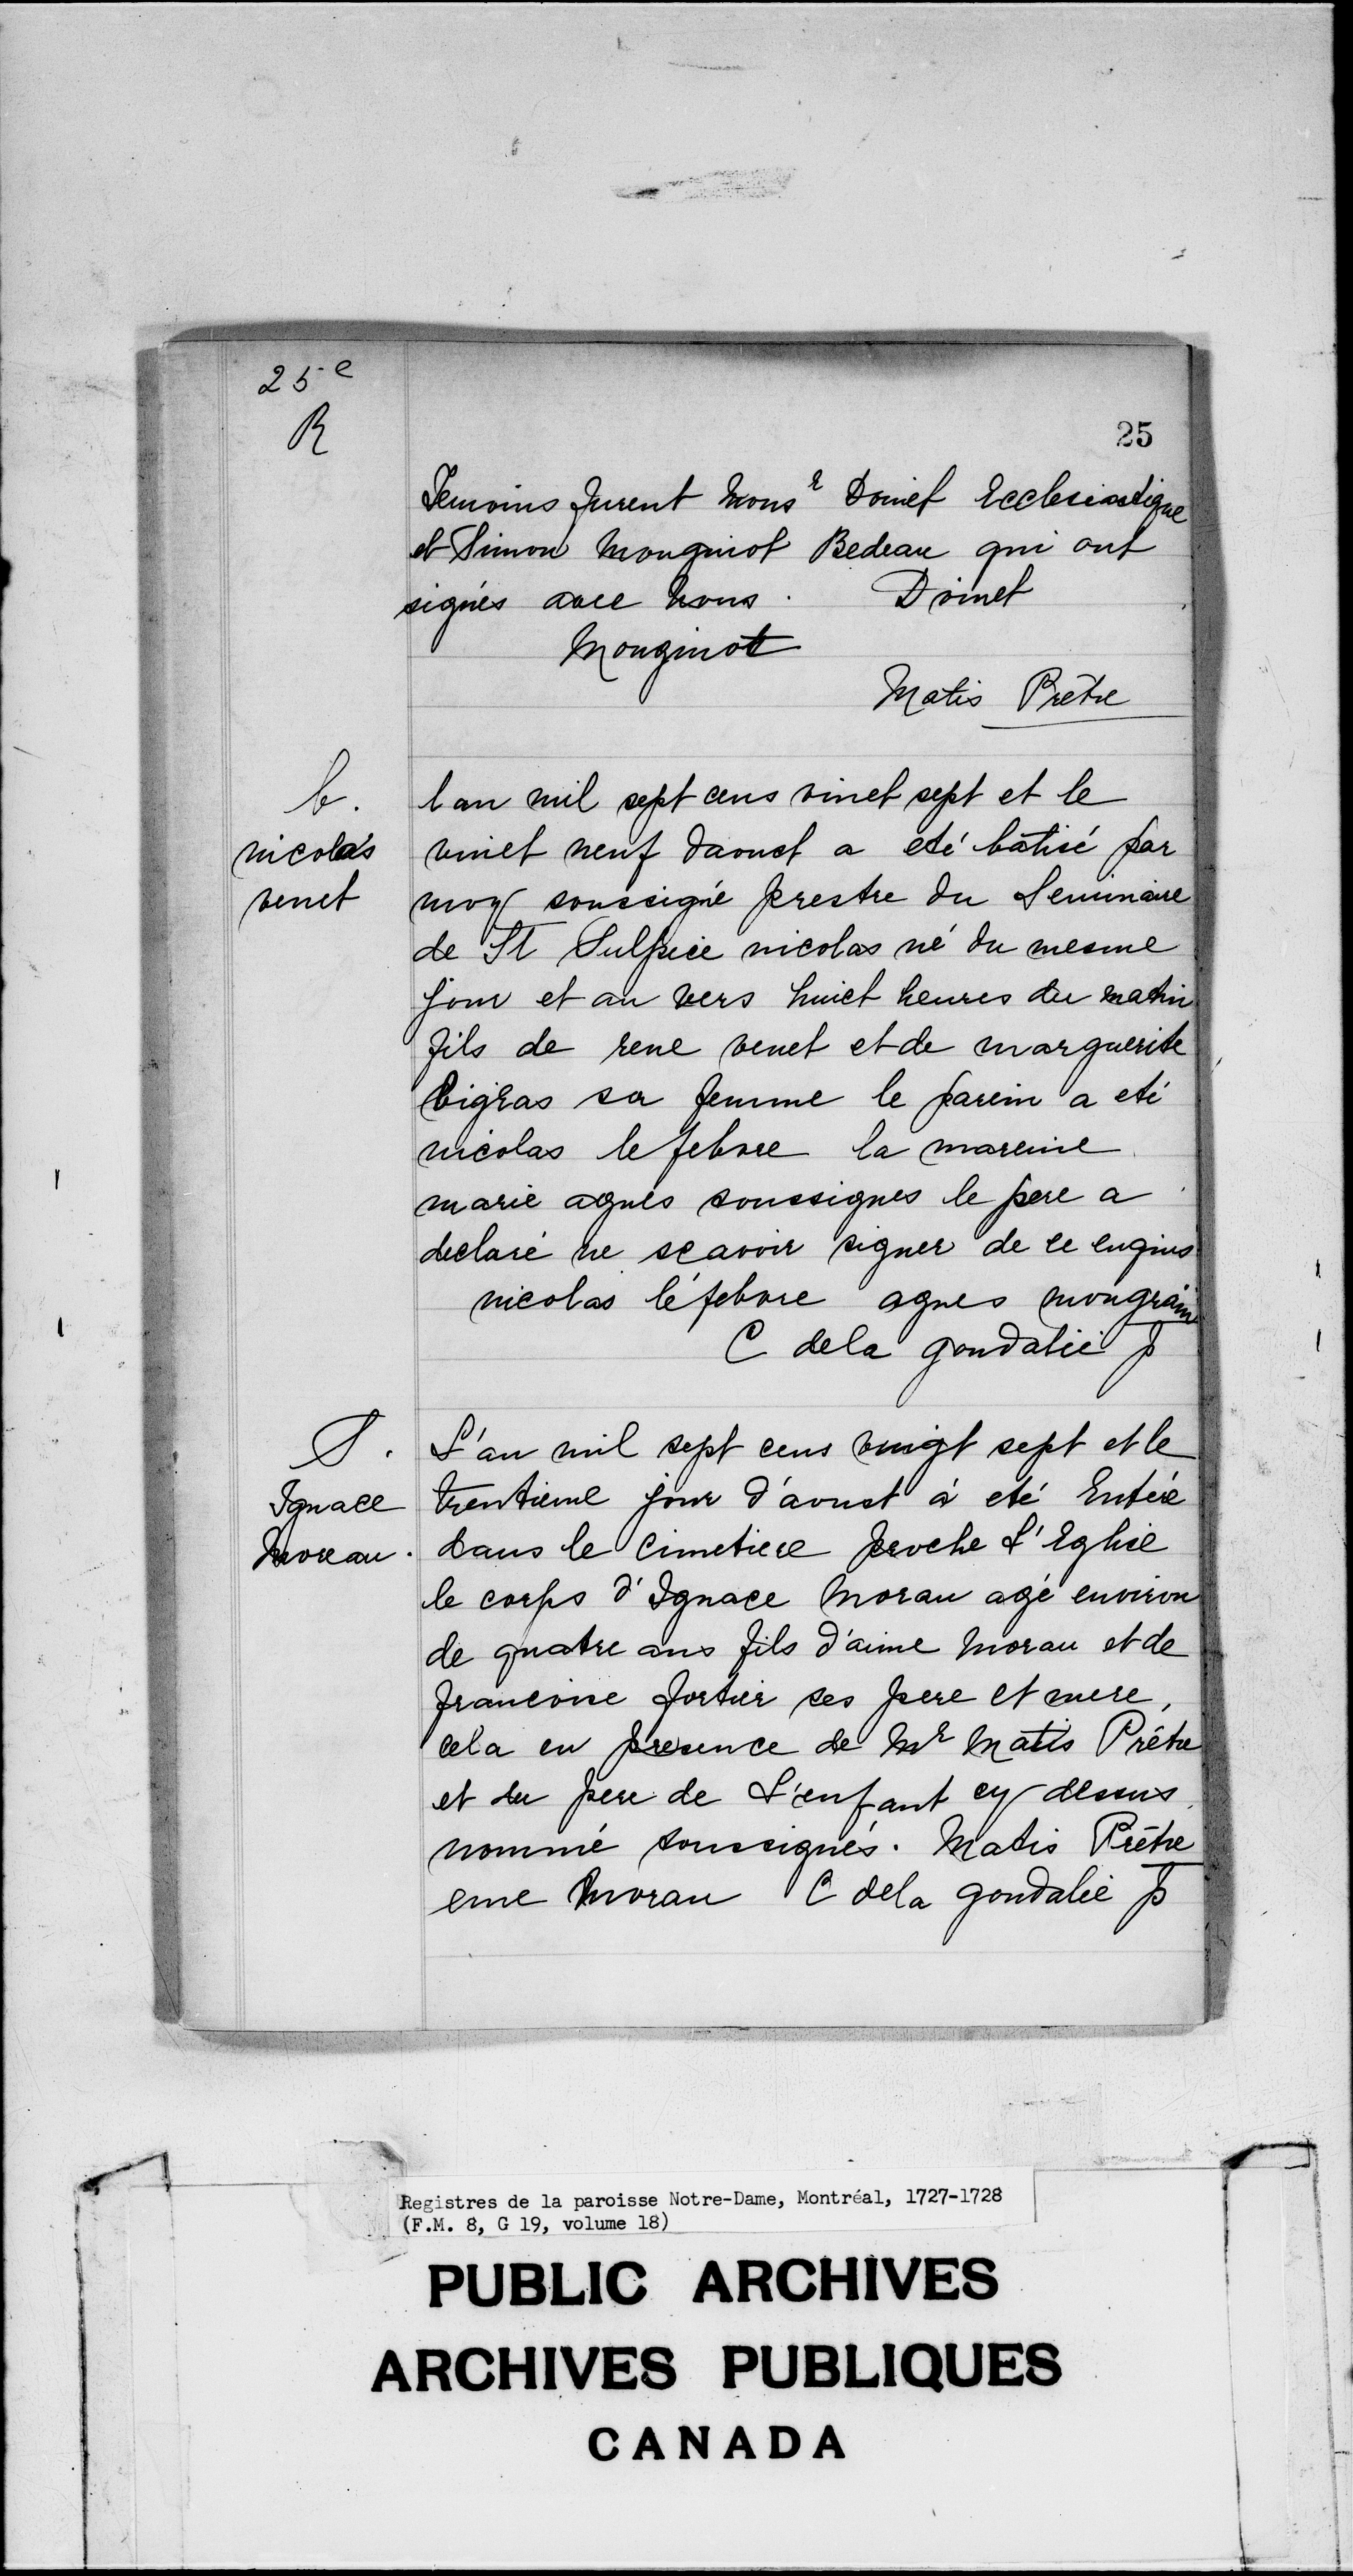 25e
R
25
Temoins furent Monsr Doinet Ecclesiastique
et Simon Mouginot Bedeau qui ont
signés avec nous. Doinet
Mouginot
Matis Prêtre
b.
nicolas
venet
l an mil sept cens vinct sept et le
vinct neuf daoust a eté bâtisé par
moy soussigné prestre du Seminaire
de St Sulpice nicolas né du mesme
jour et an vers huict heures du matin
fils de rene venet et de marguerite
bigras sa femme le parein a eté
nicolas lefebvre la mareine
marie agnes soussignes le pere a
declaré ne scavoir signer de ce enquis
nicolas léfebvre agnes mongrain
C dela goudalie p
S.
Ignace
Moreau.
L'an mil sept cens vingt sept et le
trentieme jour d'aoust à eté Entéré
dans le Cimetiere proche L'Eglise
le corps d'Ignace Morau agé environ
de quatre ans fils d'aime Morau et de
francoise fortier ses pere et mere,
cela en presence de Mr Matis Prêtre
et du pere de L'enfant cy dessus
nommé soussignés. Matis Prêtre
eme Morau C dela goudalie p
Registres de la paroisse Notre-Dame, Montréal, 1727-1728
(F.M. 8, G 19, volume 18)
PUBLIC ARCHIVES
ARCHIVES PUBLIQUES
CANADA